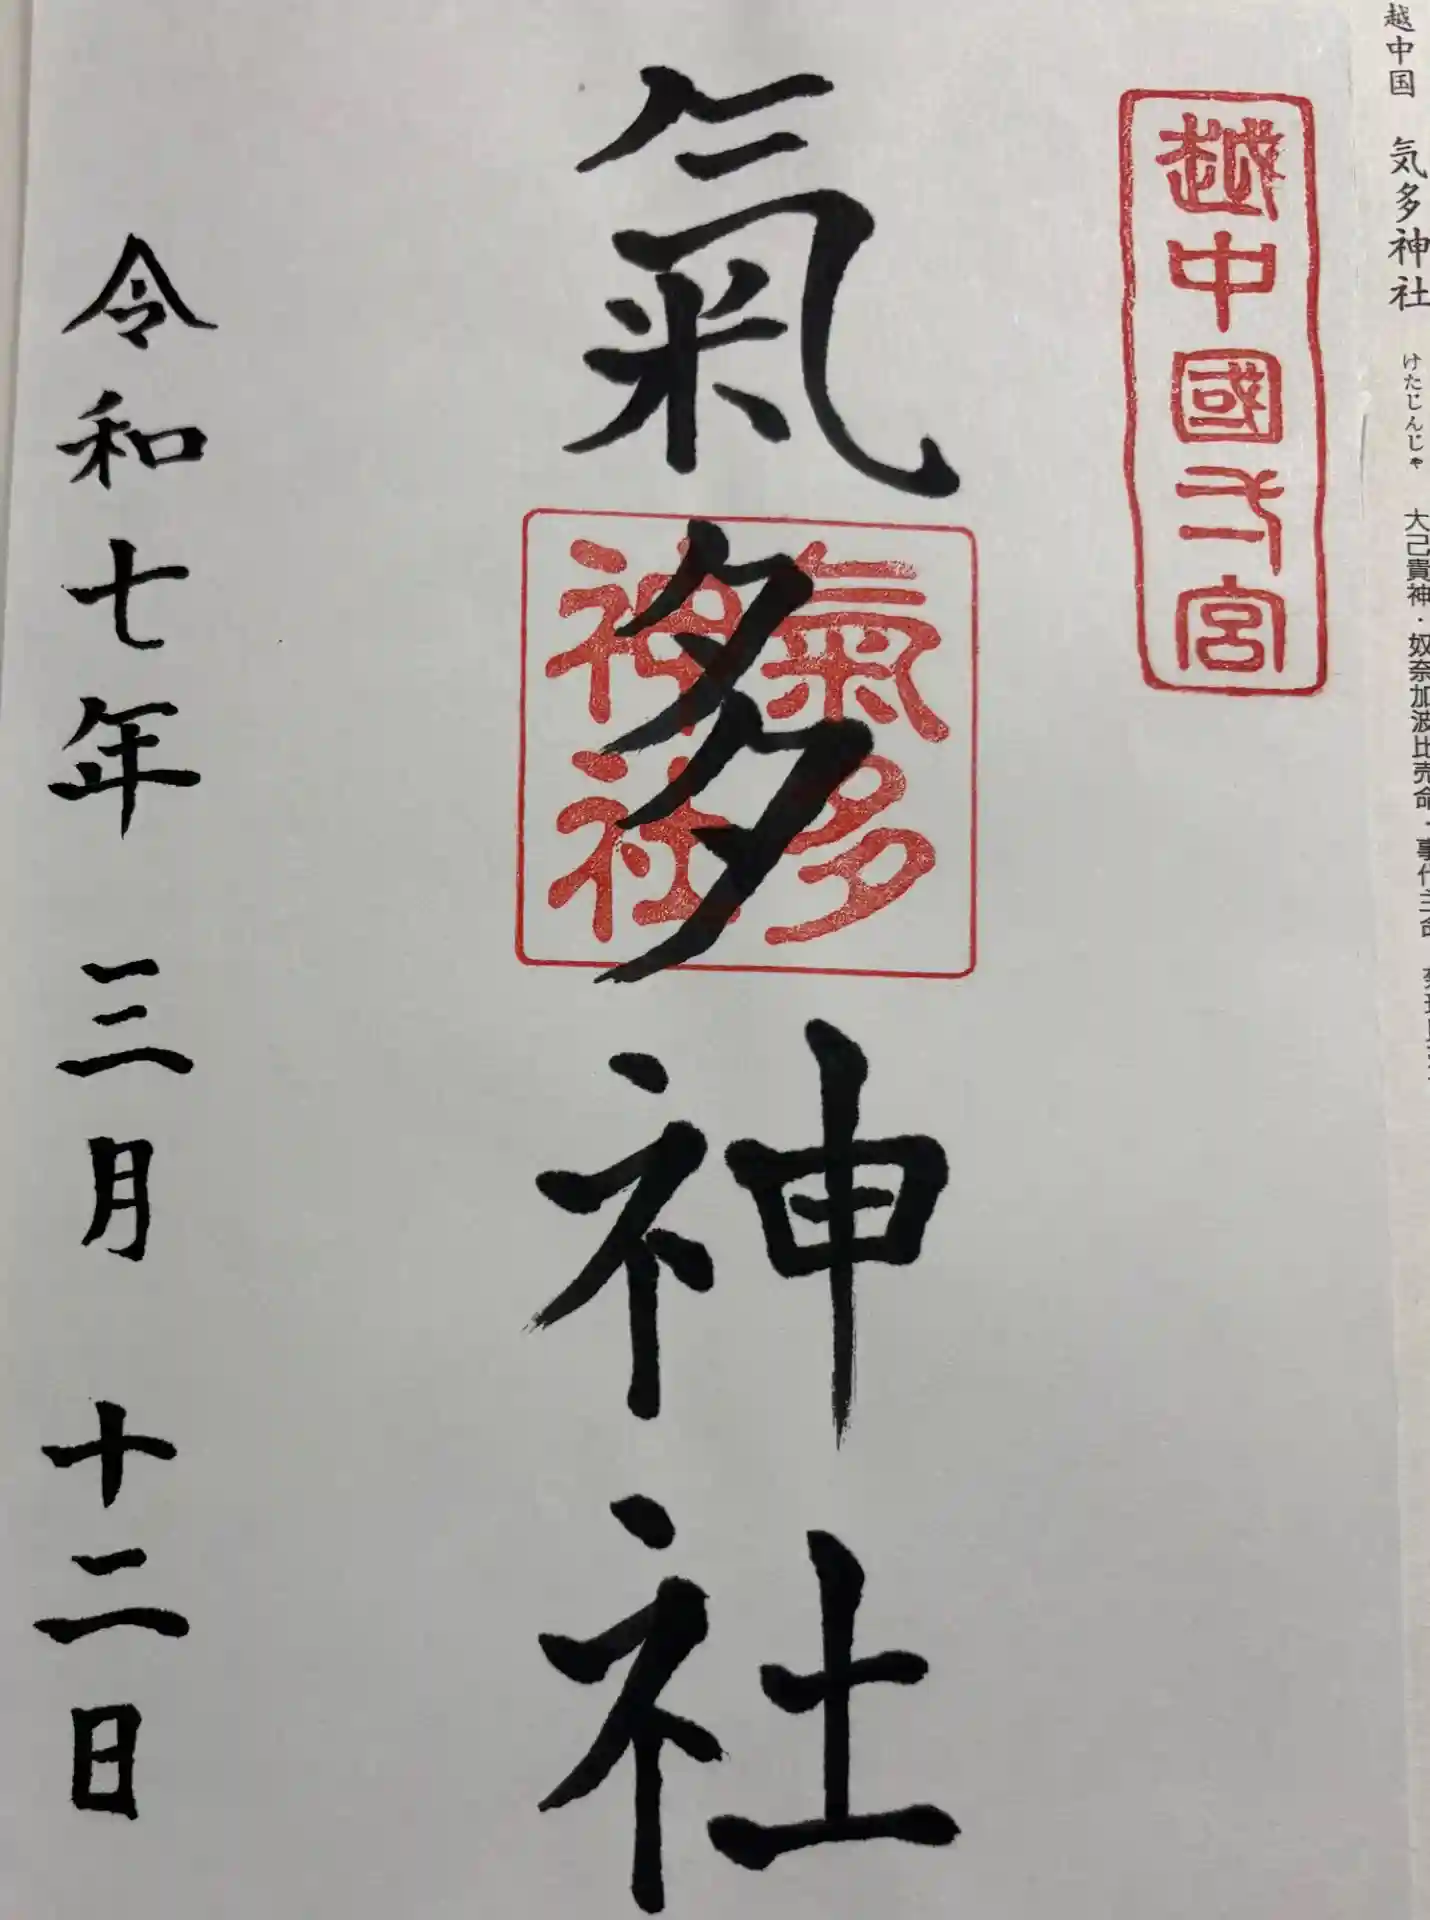 越中国 気多神社 けたじんじゃ 大己貴神・奴奈加波比売命・事代主命
越中國一宮
氣多神社
氣多神社
令和七年 三月 十二日